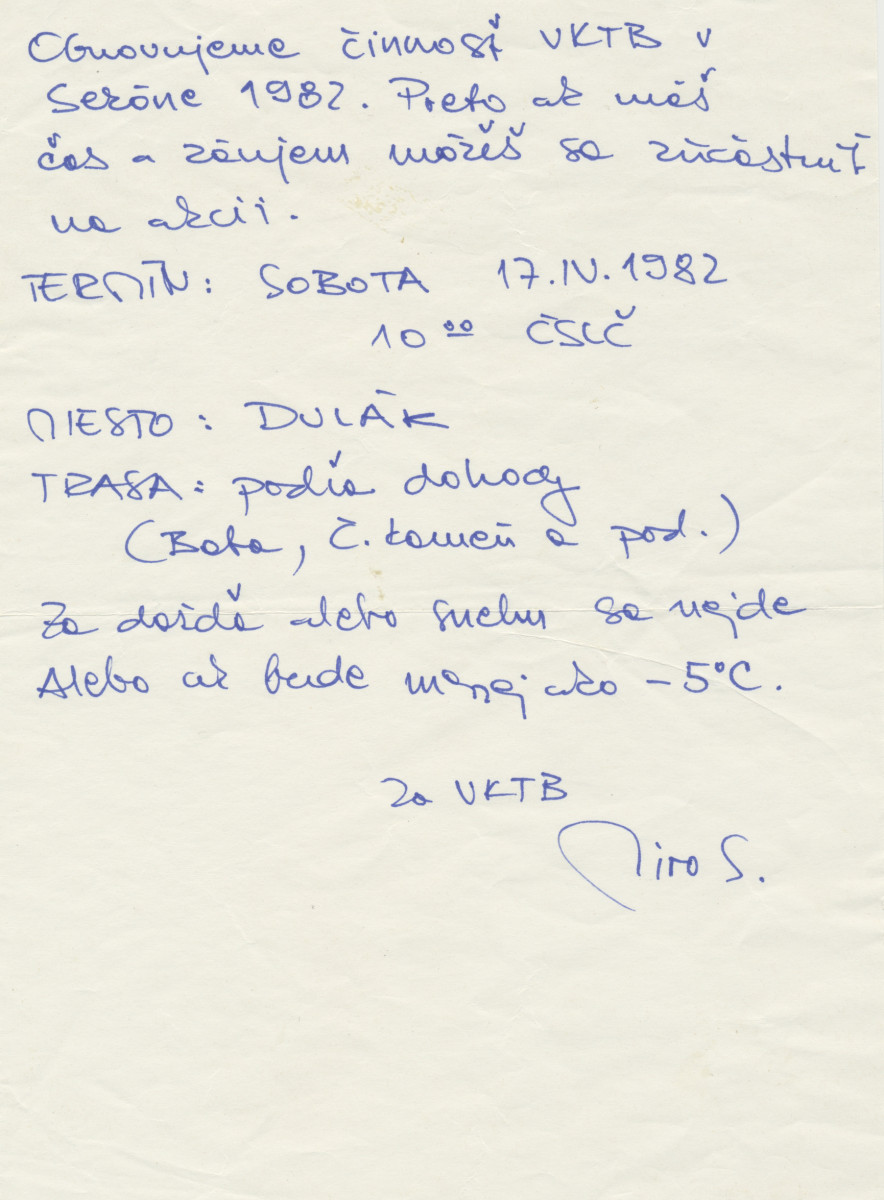 Obnovujeme činnosť VKTB v
sezóne 1982. Preto ak máš
čas a záujem môžeš sa zúčastniť
na akcii.
TERMÍN: SOBOTA 17.IV.1982
10 00 ČSLČ
MIESTO: DULÁK
TRASA: podľa dohody
(Baba, č. kameň a pod.)
Za dažďa alebo snehu sa nejde
Alebo ak bude menej ako -5°C.
Za VKTB
Miro S.